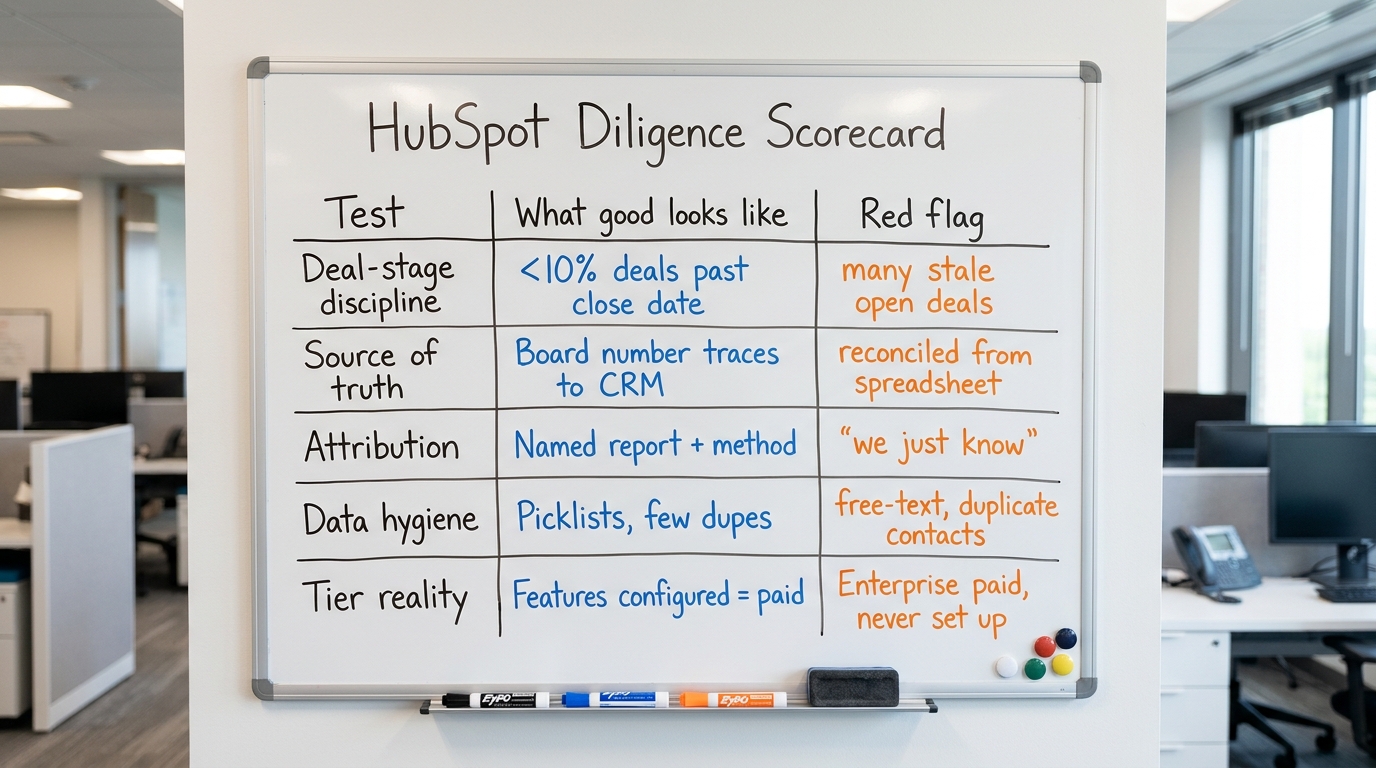 HubSpot Diligence Scorecard
Test
What good looks like
Red flag
Deal-stage
discipline
<10% deals past
close date
many stale
open deals
Source of
truth
Board number traces
to CRM
reconciled from
spreadsheet
Attribution
Named report + method
“we just know”
Data hygiene
Picklists, few dupes
free-text, duplicate
contacts
Tier reality
Features configured = paid
Enterprise paid,
never set up